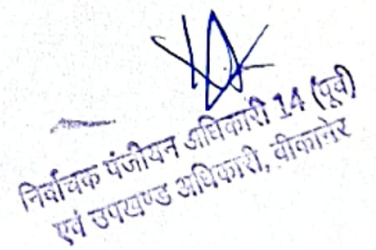 निर्वाचक पंजीयन अधिकारी 14 (पूर्व)
एवं उपखण्ड अधिकारी, बीकानेर